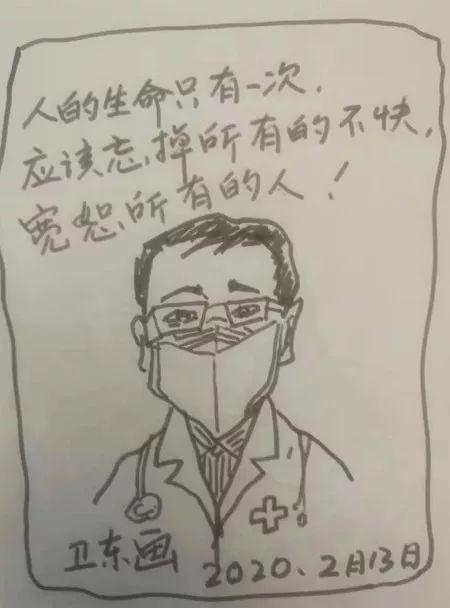 人的生命只有一次，
应该忘掉所有的不快，
宽恕所有的人！
卫东画
2020、2月13日